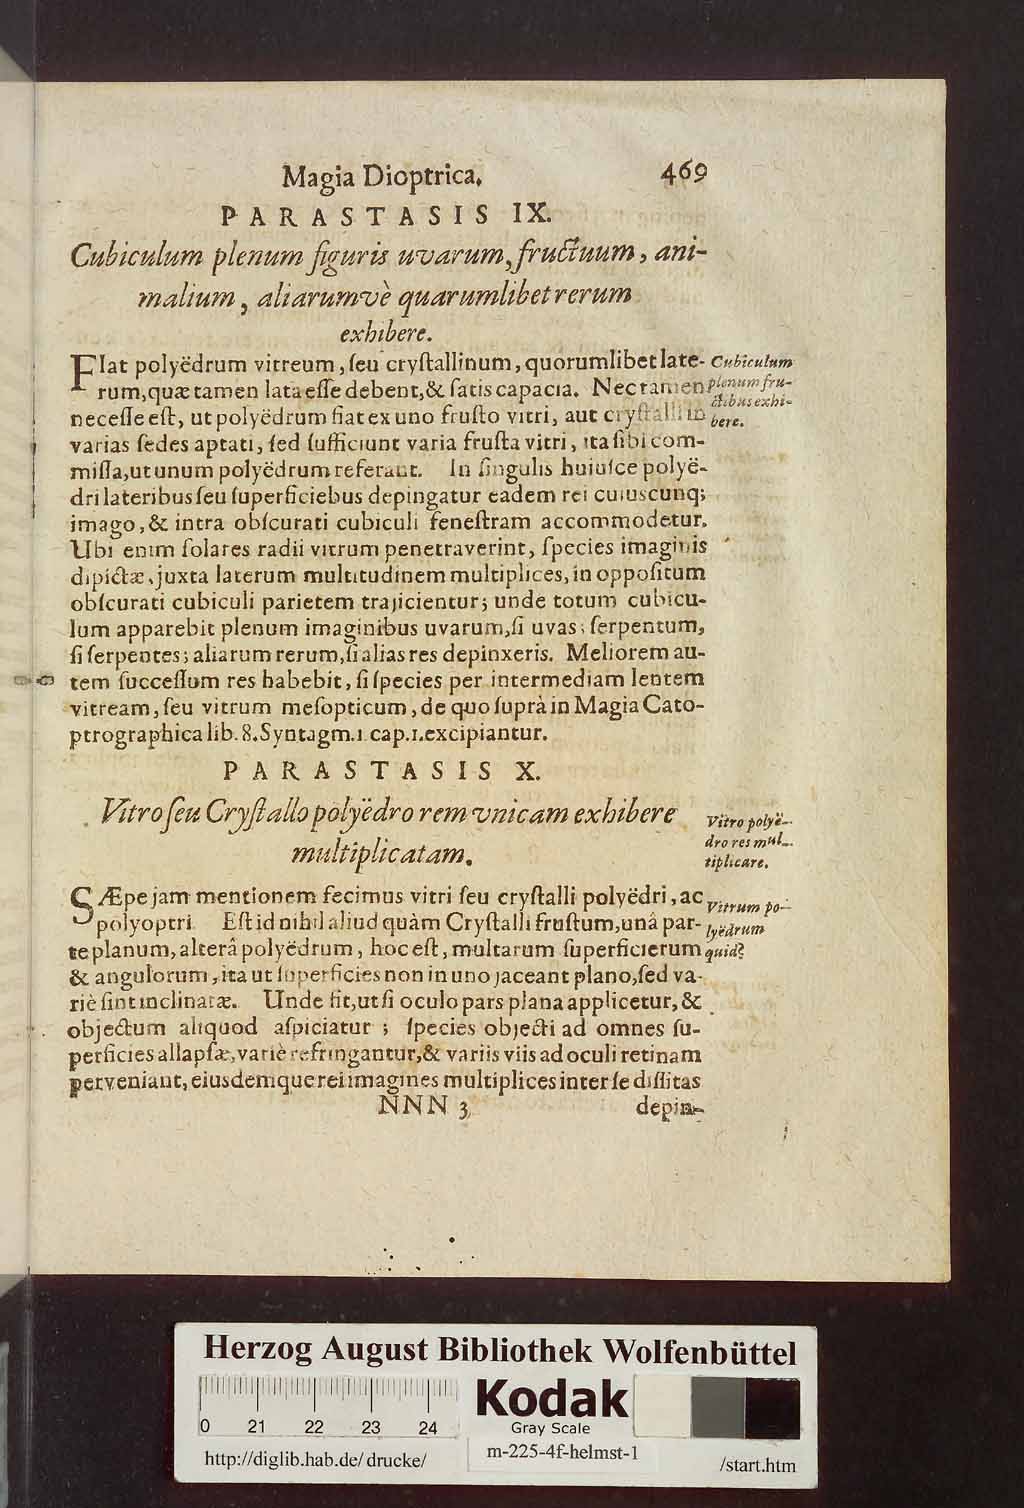 Magia Dioptrica. 469
PARASTASIS IX.
Cubiculum plenum figuris uvarum, fructuum, ani-
malium, aliarumvè quarumlibet rerum
exhibere.
FIat polyëdrum vitreum, ſeu cryſtallinum, quorumlibet late-
rum, quæ tamen lata eſſe debent, & ſatis capacia. Nec tamen
neceſſe eſt, ut polyëdrum fiat ex uno fruſto vitri, aut cryſtalli in
varias ſedes aptati, ſed ſufficiunt varia fruſta vitri, ita ſibi com-
miſſa, ut unum polyëdrum referant. In ſingulis huiuſce polyë-
dri lateribus ſeu ſuperficiebus depingatur eadem rei cuiuscunq;
imago, & intra obſcurati cubiculi feneſtram accommodetur.
Ubi enim ſolares radii vitrum penetraverint, ſpecies imaginis
dipictæ, juxta laterum multitudinem multiplices, in oppoſitum
obſcurati cubiculi parietem trajicientur; unde totum cubicu-
lum apparebit plenum imaginibus uvarum, ſi uvas; ſerpentum,
ſi ſerpentes; aliarum rerum, ſi alias res depinxeris. Meliorem au-
tem ſucceſſum res habebit, ſi ſpecies per intermediam lentem
vitream, ſeu vitrum meſopticum, de quo ſuprà in Magia Cato-
ptrographica lib. 8. Syntagm. 1 cap. 1. excipiantur.
Cubiculum
plenum fru-
ctibus exhi-
bere.
PARASTASIS X.
Vitro ſeu Cryſtallo polyëdro rem vnicam exhibere
multiplicatam.
Vitro polyë-
dro res mul-
tiplicare.
SÆpe jam mentionem fecimus vitri ſeu cryſtalli polyëdri, ac
polyoptri. Eſt id nihil aliud quàm Cryſtalli fruſtum, unâ par-
te planum, alterâ polyëdrum, hoc eſt, multarum ſuperficierum
& angulorum, ita ut ſuperficies non in uno jaceant plano, ſed va-
riè ſint inclinatæ. Unde fit, ut ſi oculo pars plana applicetur, &
objectum aliquod aſpiciatur; ſpecies objecti ad omnes ſu-
perficies allapſæ, variè refringantur, & variis viis ad oculi retinam
perveniant, eiusdemque rei imagines multiplices inter ſe diſſitas
Vitrum po-
lyëdrum
quid?
NNN 3 depin-
Herzog August Bibliothek Wolfenbüttel
0 21 22 23 24
Kodak
Gray Scale
http://diglib.hab.de/drucke/
m-225-4f-helmst-1
/start.htm